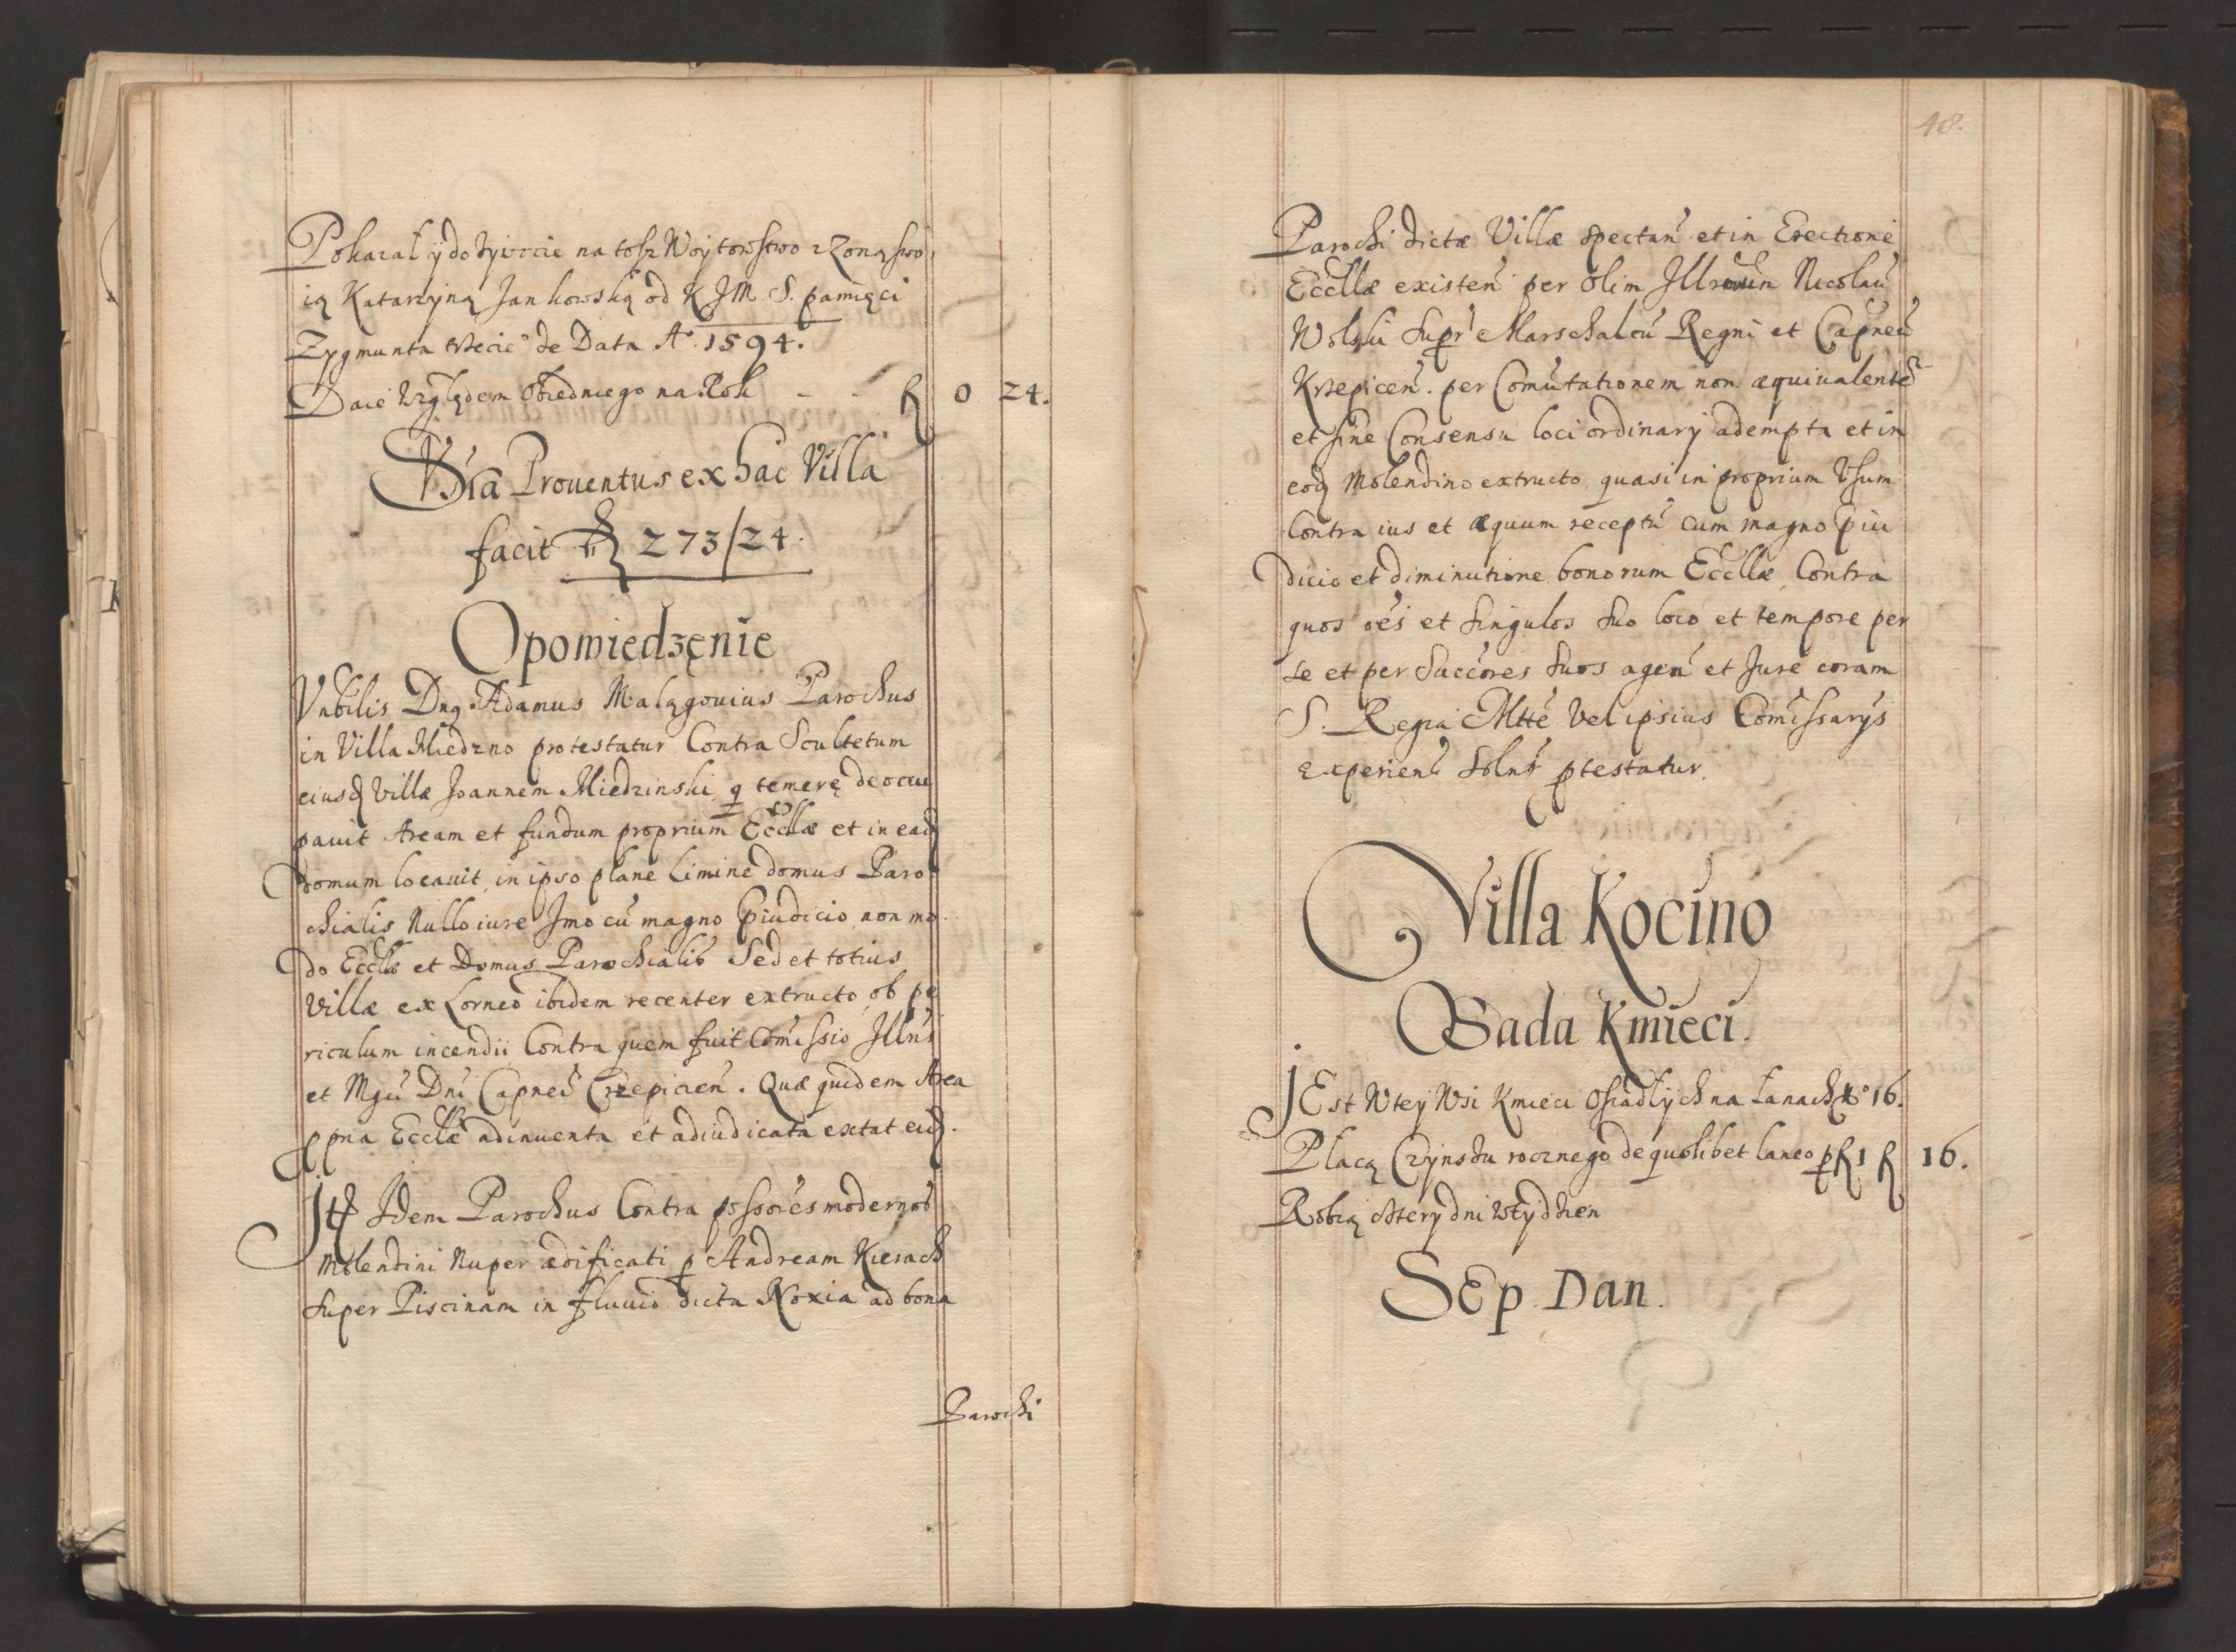 Pokazał ÿ dożÿwocie na tosz Woÿtowstwo z Zoną swo
ią Katarzÿną Jankowską od K JM S. pamięci
Zygmunta trzecie° de Data A° 1594.
Daie względem Obiednego na Rok - - f 0 24.
Sũma Prouentus ex hac Villa
facit f 273/24.
Opowiedzęnie
Vnbilis Dnq Adamus Malągouius Parochus
in Villa Miedzno protestatur Contra Scultetum
eiusq Villæ Joannem Miedzinski, q temere deoccu
pauit Aream et fundum proprium Eccllæ et in eadq
domum locauit, in ipso plane Limine domus Paro
chialis Nullo iure Jmo cũ magno Piudicio, non mo
do Ecclæ et Domus Parochialis Sed et totius
Villæ ex Lorneo ibidem recenter extructo, ob pe
riculum incendii Contra quem fuit Comissio Jllris
et Mgci Dni Capnei Crzepicien. Quæ quidem Area
ppria Ecclæ adinuenta et adiudicata extat eidq.
Jtq Jdem Parochus Contra possores modernos
Molendini Nuper ædificati p Andream Kierach
super Piscinam in fluuio dicta Koxia ad bona
Parochi
48.
Parochi dictæ Villæ spectan et in Erectione
Eccllæ existen per olim Jllrem Nicolaũ
Wolski Supr Marschalcũ Regni et Capneũ
Krzepicen. per Comutationem non æquiualente
et sine Consensu loci ordinarÿ adempta et in
eoq Molendino extructo quasi in proprium Vsum
Contra ius et æquum receptũ cum magno Piu
dicio et diminutione bonorum Eccllæ, Contra
quos oes et singulos suo loco et tempore per
se et per Succores suos agen et Jure coram
S. Regia Mtte Vel ipsius Comissarÿs
experien solnr ptestatur.
Villa Kocino
Sada Kmieci.
JEst Wteÿ Wsi Kmieci Osiadłÿch na Łanach N° 16.
Płacą Czÿnszu rocznego de quolibet laneo p f 1 f 16.
Robią czterÿ dni wtÿdzien
SEp Dan.